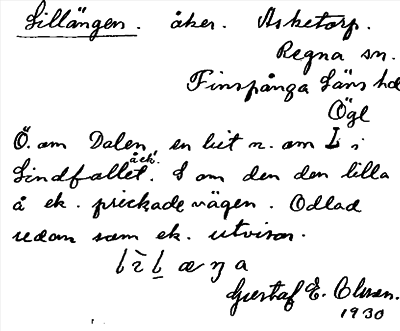 Lillängen. åker. Asketorp.
Regna sn.
Finspånga Läns hd
Ögl
Ö. om Dalen, en bit n. om L i
åck.
Lindfallet. S om den den lilla
å ek. prickade vägen. Odlad
redan som ek. utvisar.
Gustaf E. Olsson.
1930